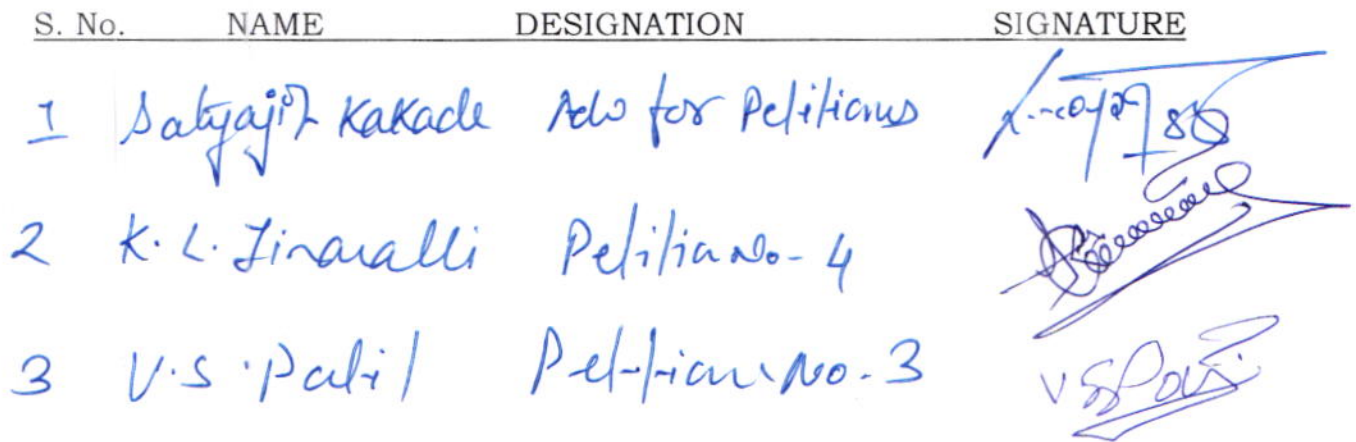 S. No. NAME DESIGNATION SIGNATURE
1 Satyajit Kakade Adv for Petitions
2 K. L. Jinaralli Petition No- 4
3 V.S. Patil Petition No. 3 VSPatil